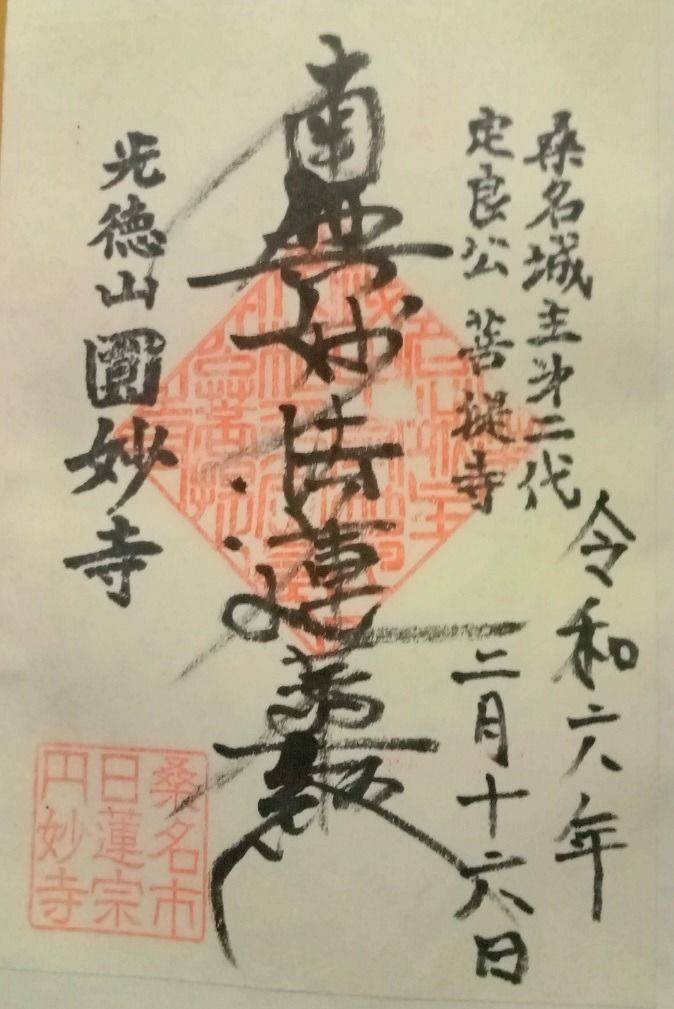 桑名城主第二代
定良公 菩提寺
令和六年
二月十六日
南無妙法蓮華経
光徳山圓妙寺
桑名市
日蓮宗
円妙寺